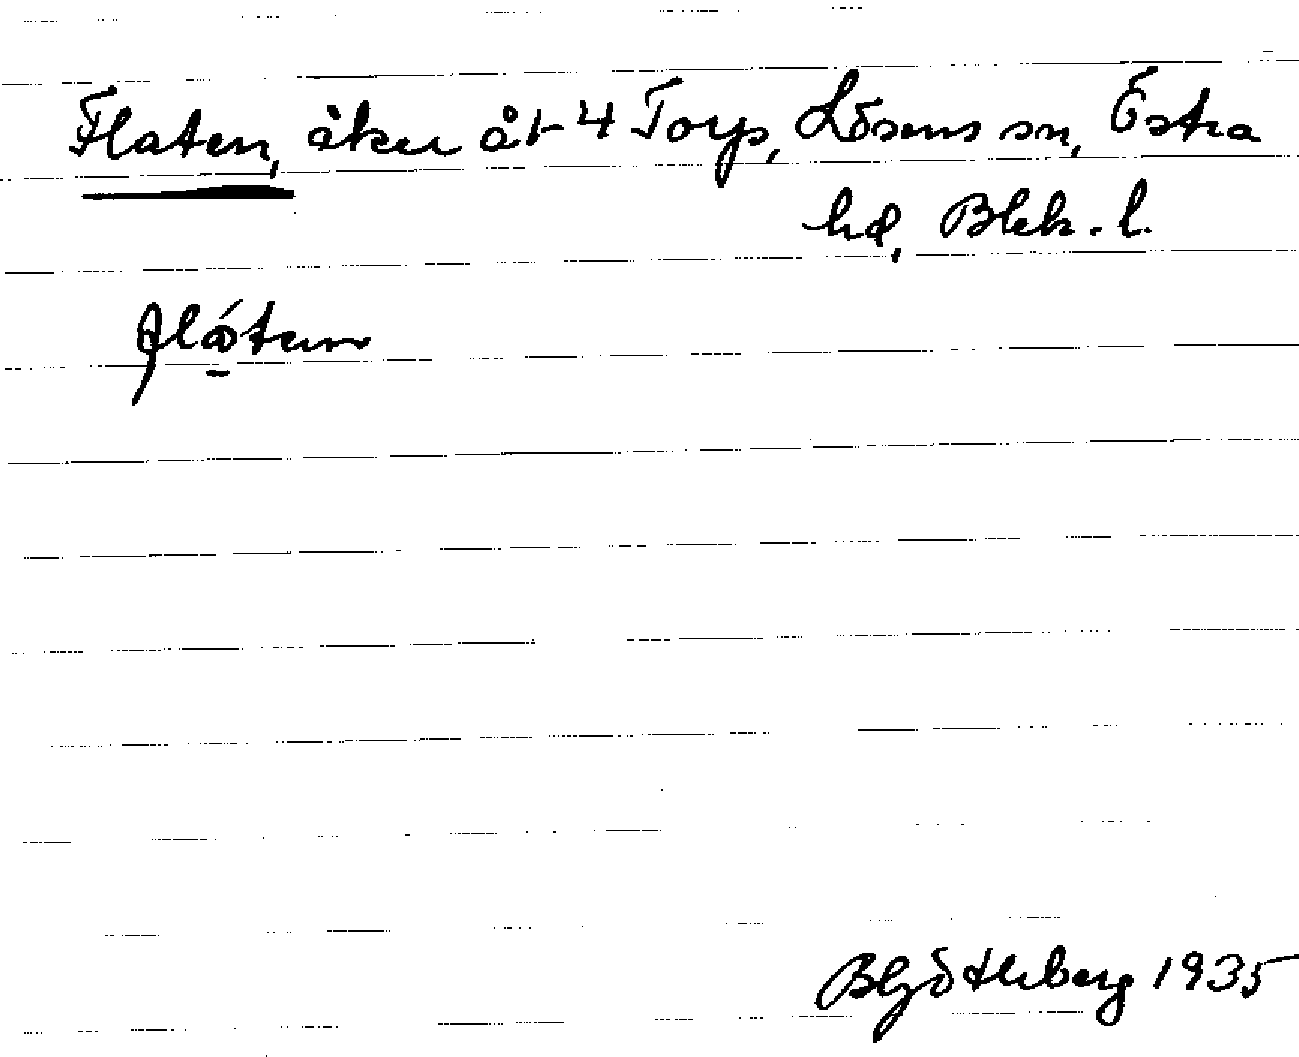 Flaten, åker åt 4 Torp, Lösens sn, Östra
hd, Blek. l.
BGötleberg 1935